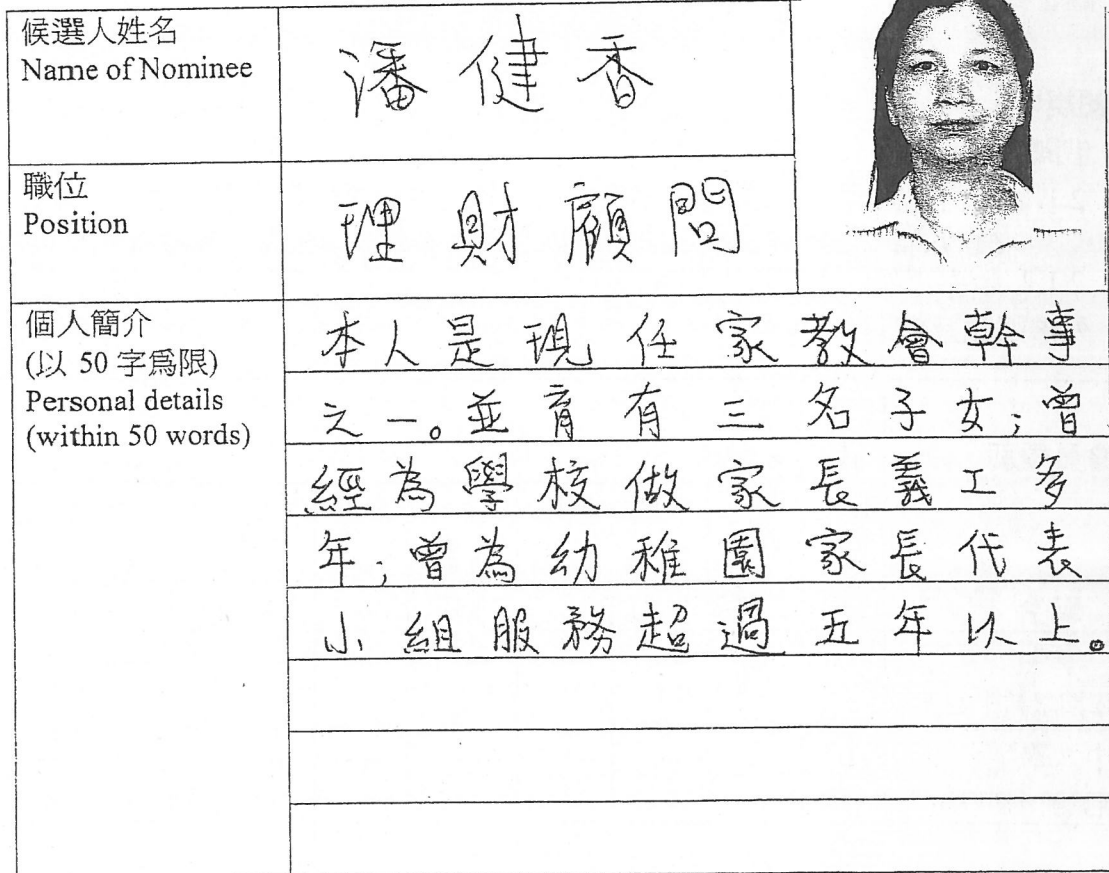 候選人姓名
Name of Nominee
潘健香
職位
Position
理財顧問
個人簡介
(以 50 字為限)
Personal details
(within 50 words)
本人是現任家教會幹事
之一。並育有三名子女;曾
經為學校做家長義工多
年;曾為幼稚園家長代表
小組服務超過五年以上。